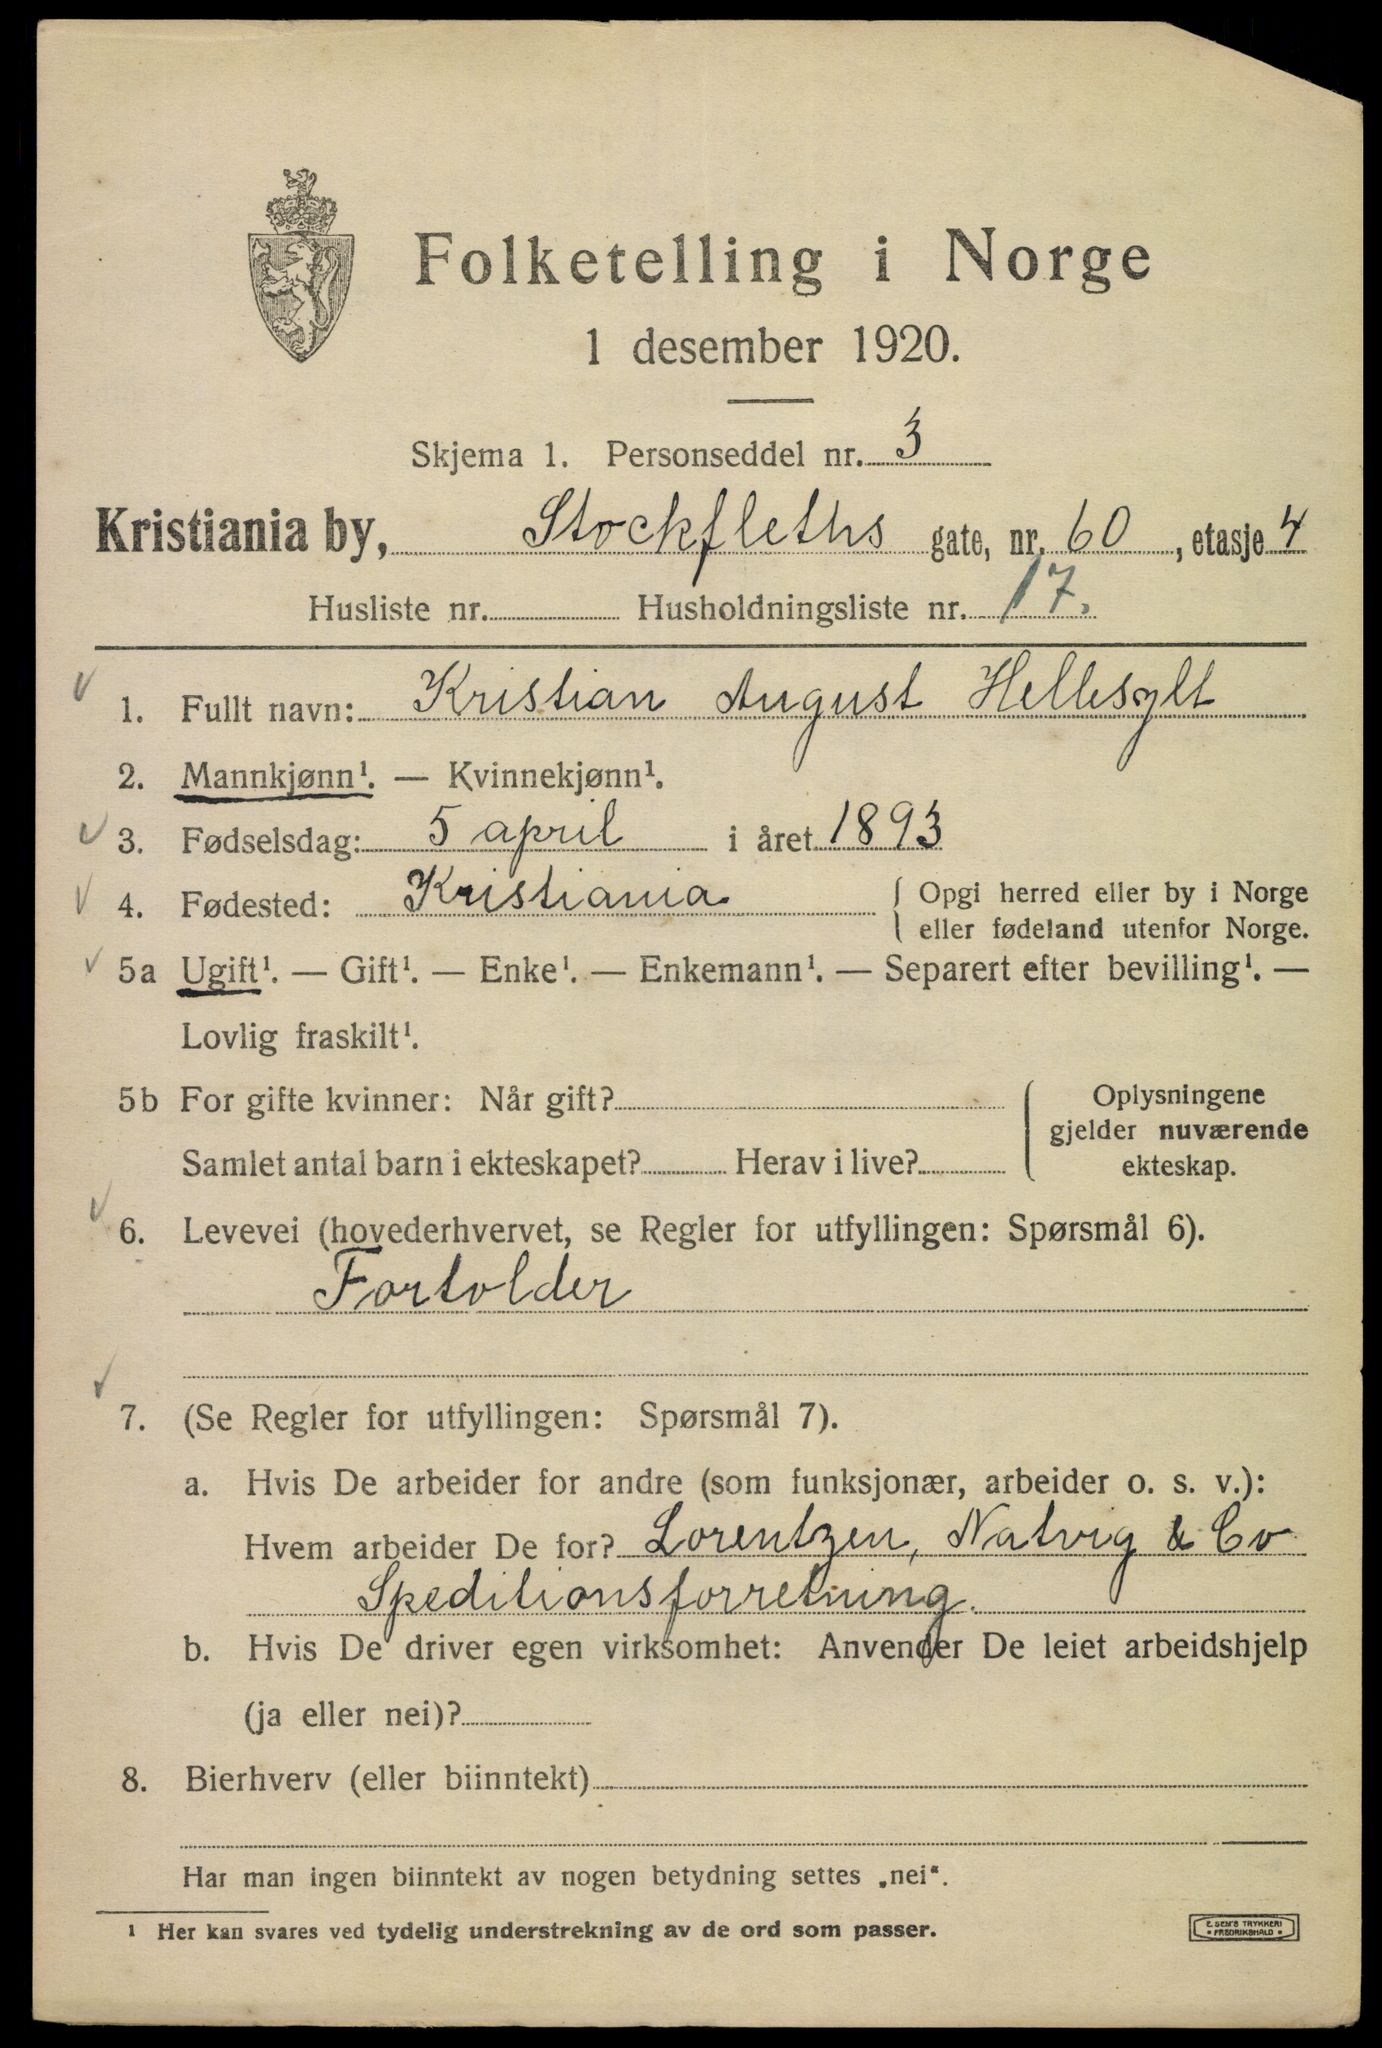 Folketelling i Norge
1 desember 1920.
Skjema 1. Personseddel nr. 3
Kristiania by, Stockfleths gate, nr. 60, etasje 4
Husliste nr. Husholdningsliste nr. 17.
1. Fullt navn: Kristian August Hellesylt
2. Mannkjønn¹. — Kvinnekjønn¹.
3. Fødselsdag: 5 april i året 1893
4. Fødested: Kristiania { Opgi herred eller by i Norge
eller fødeland utenfor Norge.
5a Ugift¹. — Gift¹. — Enke¹. — Enkemann¹. — Separert efter bevilling¹. —
Lovlig fraskilt¹.
5b For gifte kvinner: Når gift?
Samlet antal barn i ekteskapet? Herav i live?
Oplysningene
gjelder nuværende
ekteskap.
6. Levevei (hovederhvervet, se Regler for utfyllingen: Spørsmål 6).
Fortolder
7. (Se Regler for utfyllingen: Spørsmål 7).
a. Hvis De arbeider for andre (som funksjonær, arbeider o. s. v.):
Hvem arbeider De for? Lorentzen, Natvig & Co
Speditionsforretning.
b. Hvis De driver egen virksomhet: Anvender De leiet arbeidshjelp
(ja eller nei)?
8. Bierhverv (eller biinntekt)
Har man ingen biinntekt av nogen betydning settes „nei“.
¹ Her kan svares ved tydelig understrekning av de ord som passer.
E. SEM'S TRYKKERI
• FREDRIKSHALD •